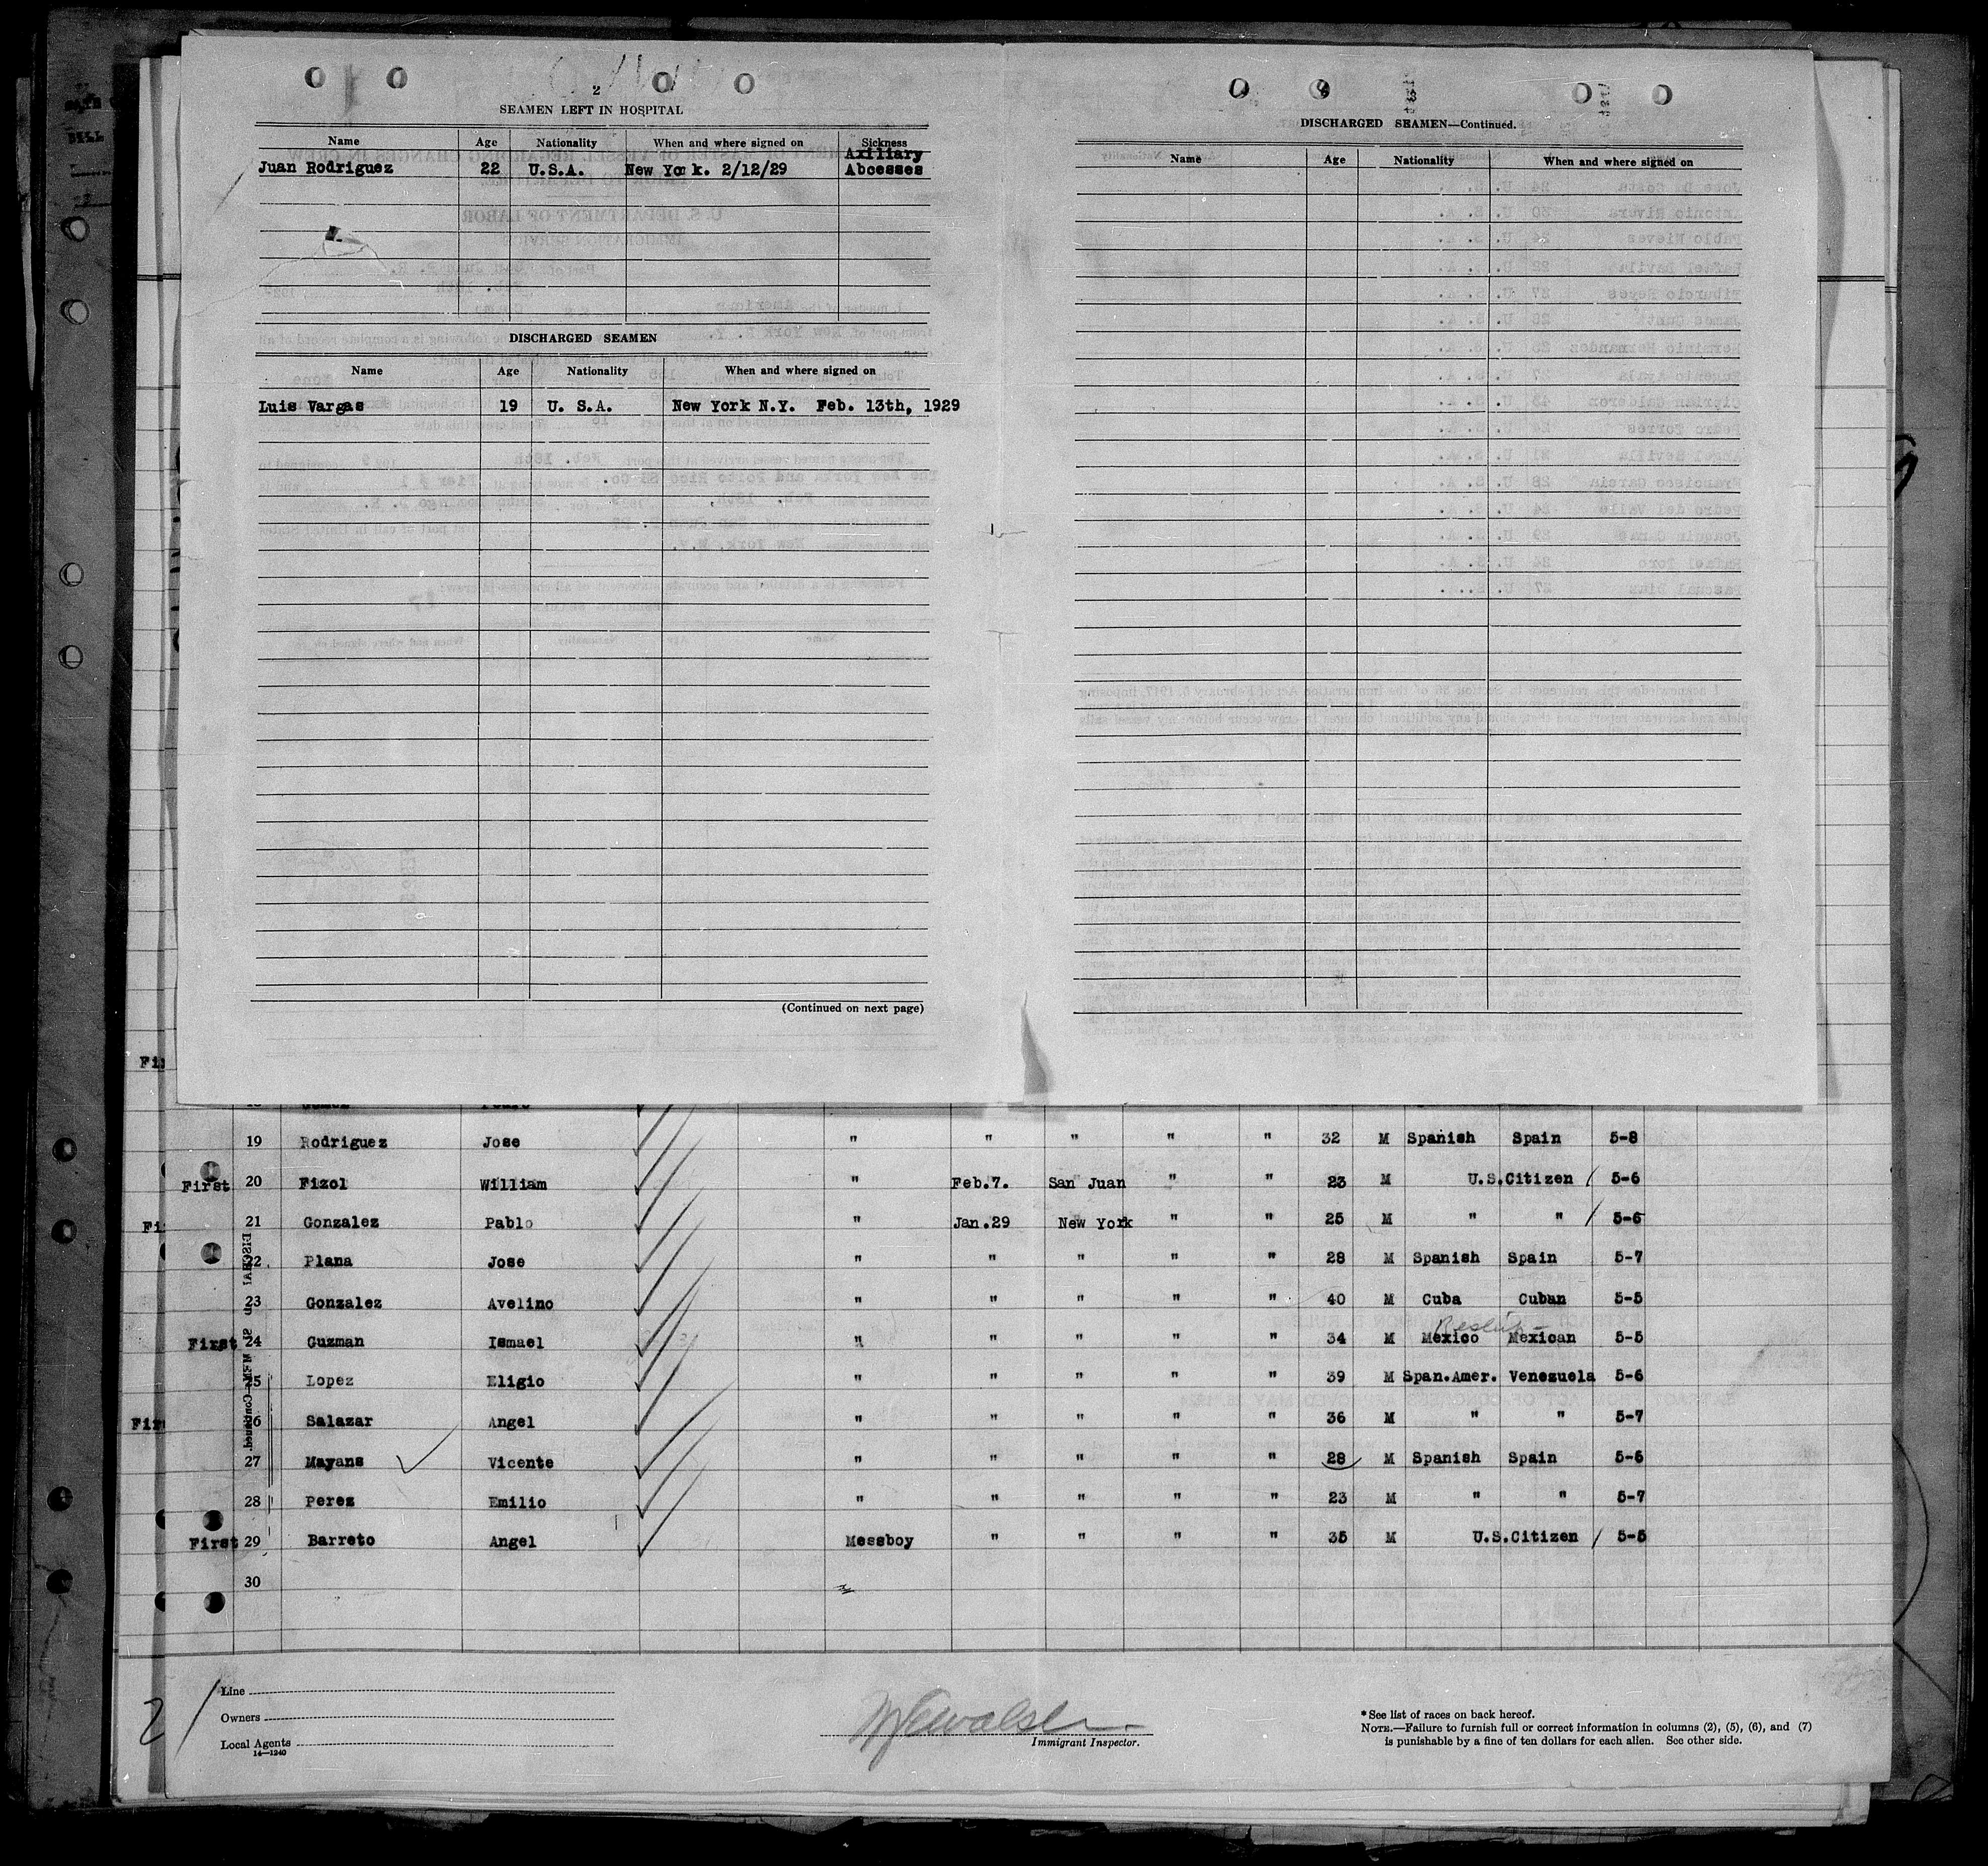 2
SEAMEN LEFT IN HOSPITAL
Name Age Nationality When and where signed on Sickness
Juan Rodriguez 22 U.S.A. New York. 2/12/29 Axiliary Abcesses
DISCHARGED SEAMEN
Name Age Nationality When and where signed on
Luis Vargas 19 U. S.A. New York N.Y. Feb. 13th, 1929
(Continued on next page)
DISCHARGED SEAMEN—Continued.
Name Age Nationality When and where signed on
19 Rodriguez Jose " " " " " 32 M Spanish Spain 5-8
First 20 Fizol William " Feb.7. San Juan " " 23 M U.S.Citizen / 5-6
21 Gonzalez Pablo " Jan.29 New York " " 25 M " " / 5-6
22 Plana Jose " " " " " 28 M Spanish Spain 5-7
23 Gonzalez Avelino " " " " " 40 M Cuba Cuban 5-5
First 24 Guzman Ismael " " " " " 34 M Mexico Mexican 5-5
25 Lopez Eligio " " " " " 39 M Span.Amer. Venezuela 5-6
26 Salazar Angel " " " " " 36 M " " 5-7
27 Mayans Vicente " " " " " 28 M Spanish Spain 5-6
28 Perez Emilio " " " " " 23 M " " 5-7
First 29 Barreto Angel Messboy " " " " 35 M U.S.Citizen / 5-5
30
2
Line
Owners
Local Agents
14—1240
Immigrant Inspector.
*See list of races on back hereof.
NOTE.—Failure to furnish full or correct information in columns (2), (5), (6), and (7)
is punishable by a fine of ten dollars for each alien. See other side.